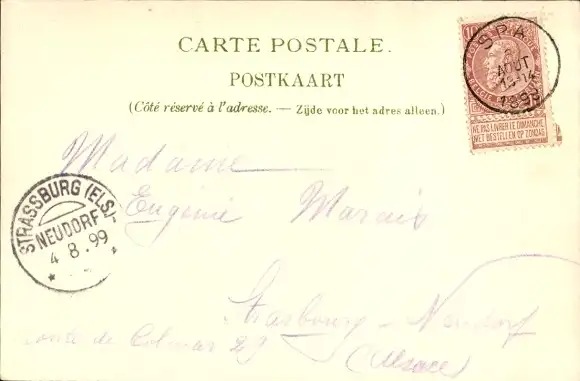 CARTE POSTALE.
POSTKAART
(Côté réservé à l'adresse. — Zijde voor het adres alleen.)
SPA
AOUT
NE PAS LIVRER LE DIMANCHE
NIET BESTELLEN OP ZONDAG
Madame
Eugénie Marais
STRASSBURG (ELS)-
NEUDORF
4 8.99
Strasbourg - Neudorf
route de Colmar 29
(Alsace)